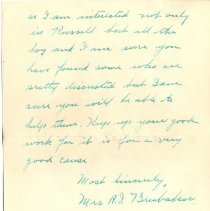 as I am interested not only
in Russell but all the
boy and I am sure you
have found some who are
pretty disgusted but I am
sure you will be able to
help them. Keep up your good
work for it is for a very
good cause.
Most sincerely,
Mrs R.F. Brubaker